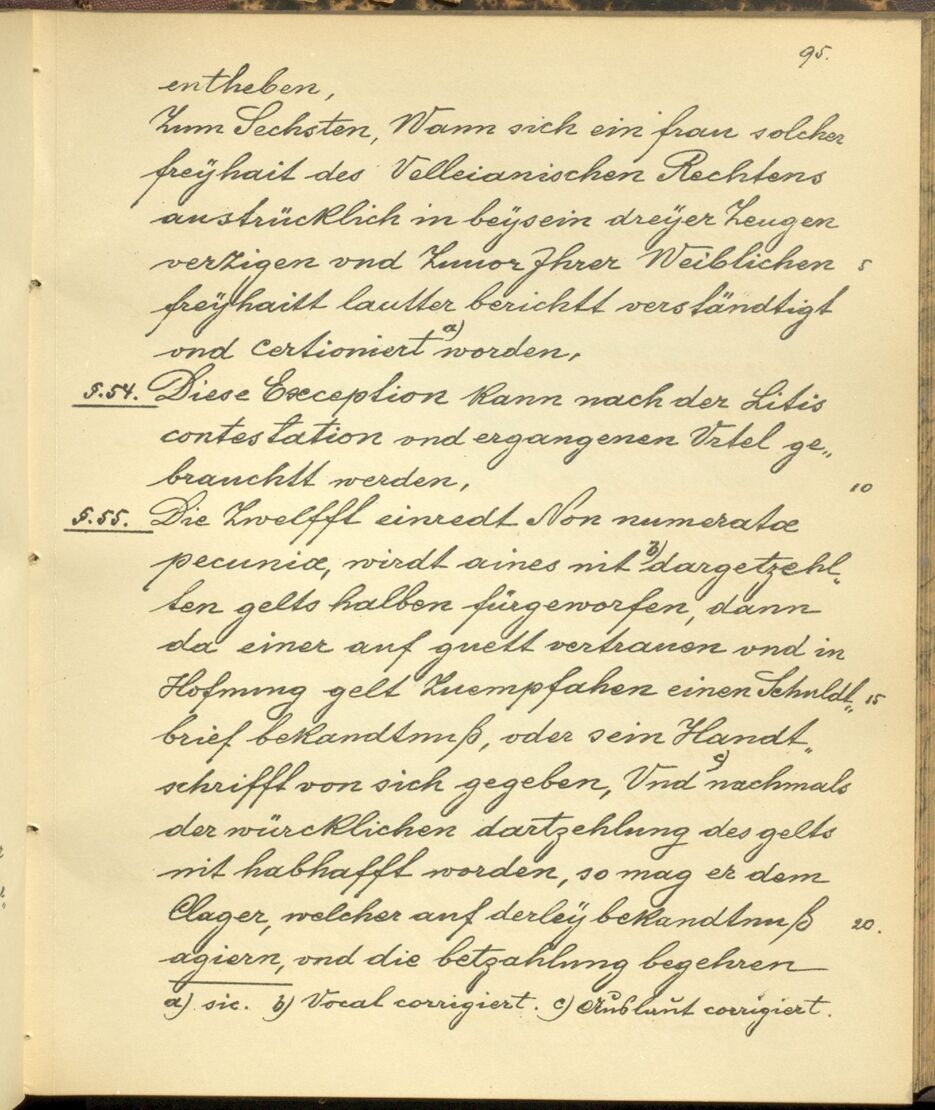 95.
entheben,
Zum Sechsten, Wann sich ein frau solcher
freÿhait des Velleianischen Rechtens
austrücklich in beÿsein dreÿer Zeugen
verzigen vnd Zuuor Jhrer Weiblichen 5
freÿhaitt lautter berichtt verständtigt
vnd certioniert a) worden,
§.54. Diese Exception kann nach der Litis
contestation vnd ergangenen Vrtel ge„
brauchtt werden, 10
§.55. Die Zwelfft einredt Non numeratæ
pecuniæ, wirdt aines nit b) dargetzehl„
ten gelts halben fürgeworfen, dann
da einer auf guett vertrauen vnd in
Hofnung gelt Zuempfahen einen Schuldt„ 15
brief bekandtnuß, oder sein Handt„
schrifft von sich gegeben, Vnd c) nachmals
der würcklichen dartzehlung des gelts
nit habhafft worden, so mag er dem
Clager, welcher auf derleÿ bekandtnuß 20.
agiern, vnd die betzahlung begehren
a) sic. b) Vocal corrigiert. c) Auslaut corrigiert.